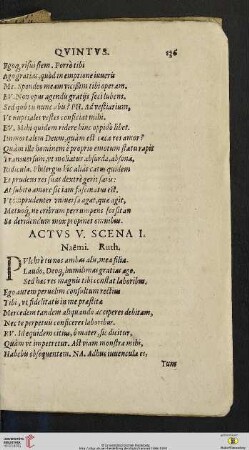 QVINTVS. 136
Ego, risus siem. Porrò tibi
Ago gratias, quòd in emptione iuueris
Me. Spondeo meam vicissim tibi operam.
EV. Non opus agendis gratijs: sed lubens.
Sed quò tu nunc abis? PH. Ad vestiarium,
Vt nuptiales vestes conficiat mihi.
EV. Mihi quidem ridere hinc oppidò libet.
Immortalem Deum, quàm illa res amor?
Quàm ille hominem è proprio emotum statu rapit
Transuersum, vt moliatur absurda, absona,
Ridicula. Philergus hic aliàs catus quidem
Et prudens res suas dextrè gerit satis:
At subito amore sic iam fascinatus est,
Vt imprudenter vniuersa agat, que agit,
Metuoq́, ne cribrum per rumpens
Se deridendum mox propinet omnibus.
ACTVS V. SCENA I.
Naëmi. Ruth.
PVlchrè tu nos ambas alis, mea filia.
Laudo, Deoq́, immortali gratias ago.
Sed hæc res magnis tibi constat laboribus.
Ego autem peruelim consultum rectius
Tibi, vt fidelitatis in me præstitæ
Mercedem tandem aliquando acciperes debitam,
Nec te perpetuis conficeres laboribus.
EV. Id equidem citius, ô mater, sic dicitur,
Quàm vt impetretur. Ast viam monstra mihi,
Habebis obsequentem. NA. Adhuc iuuencula es,
Tum